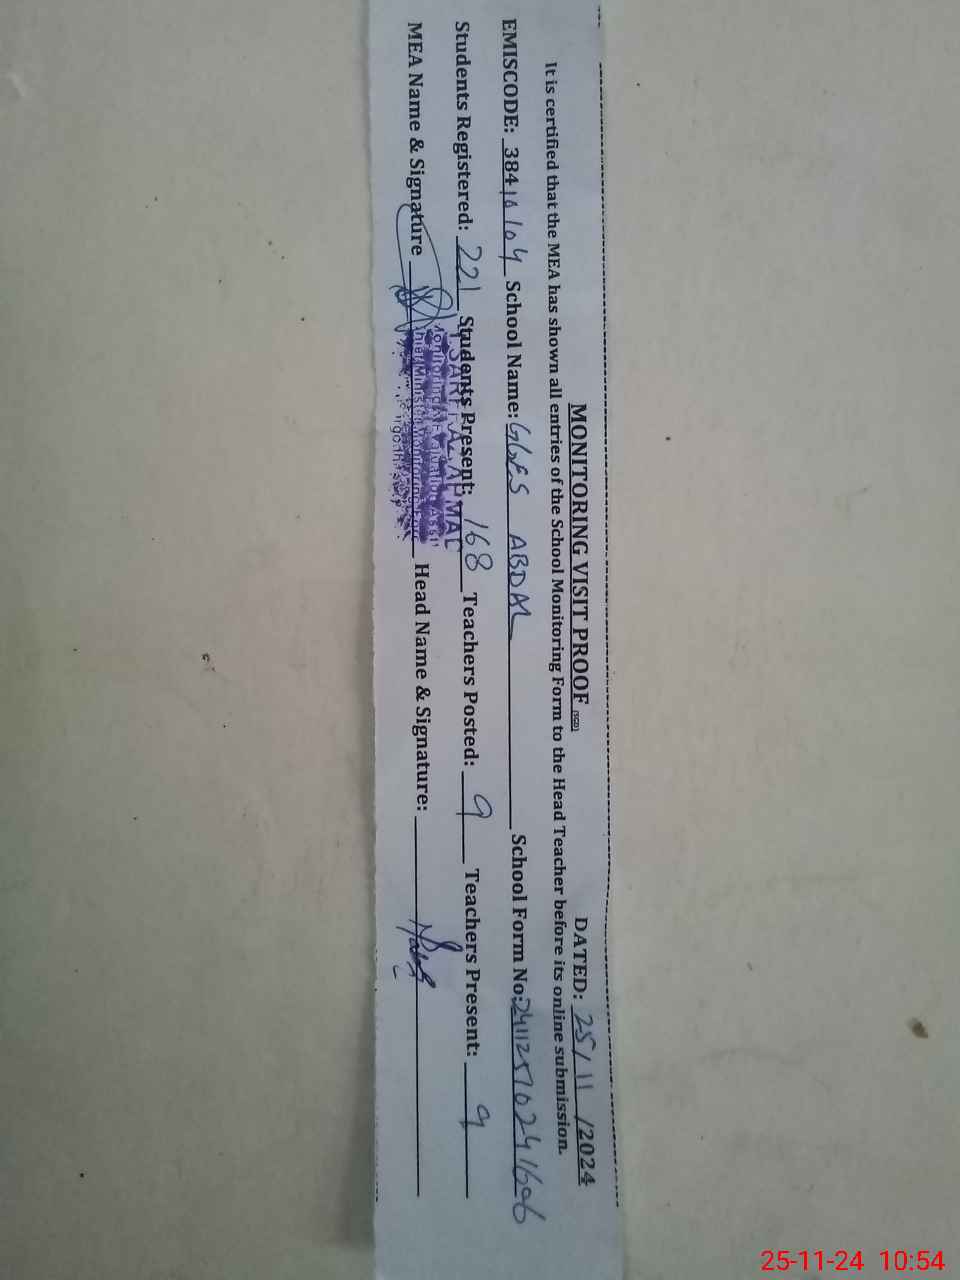 MONITORING VISIT PROOF (SED) DATED: 25/11/2024
It is certified that the MEA has shown all entries of the School Monitoring Form to the Head Teacher before its online submission.
EMISCODE: 38410104 School Name: GGES ABDAL School Form No: 24112510241606
Students Registered: 221 Students Present: 168 Teachers Posted: 9 Teachers Present: 9
MEA Name & Signature Head Name & Signature:
Monitoring & Evaluation Asstt
25-11-24 10:54